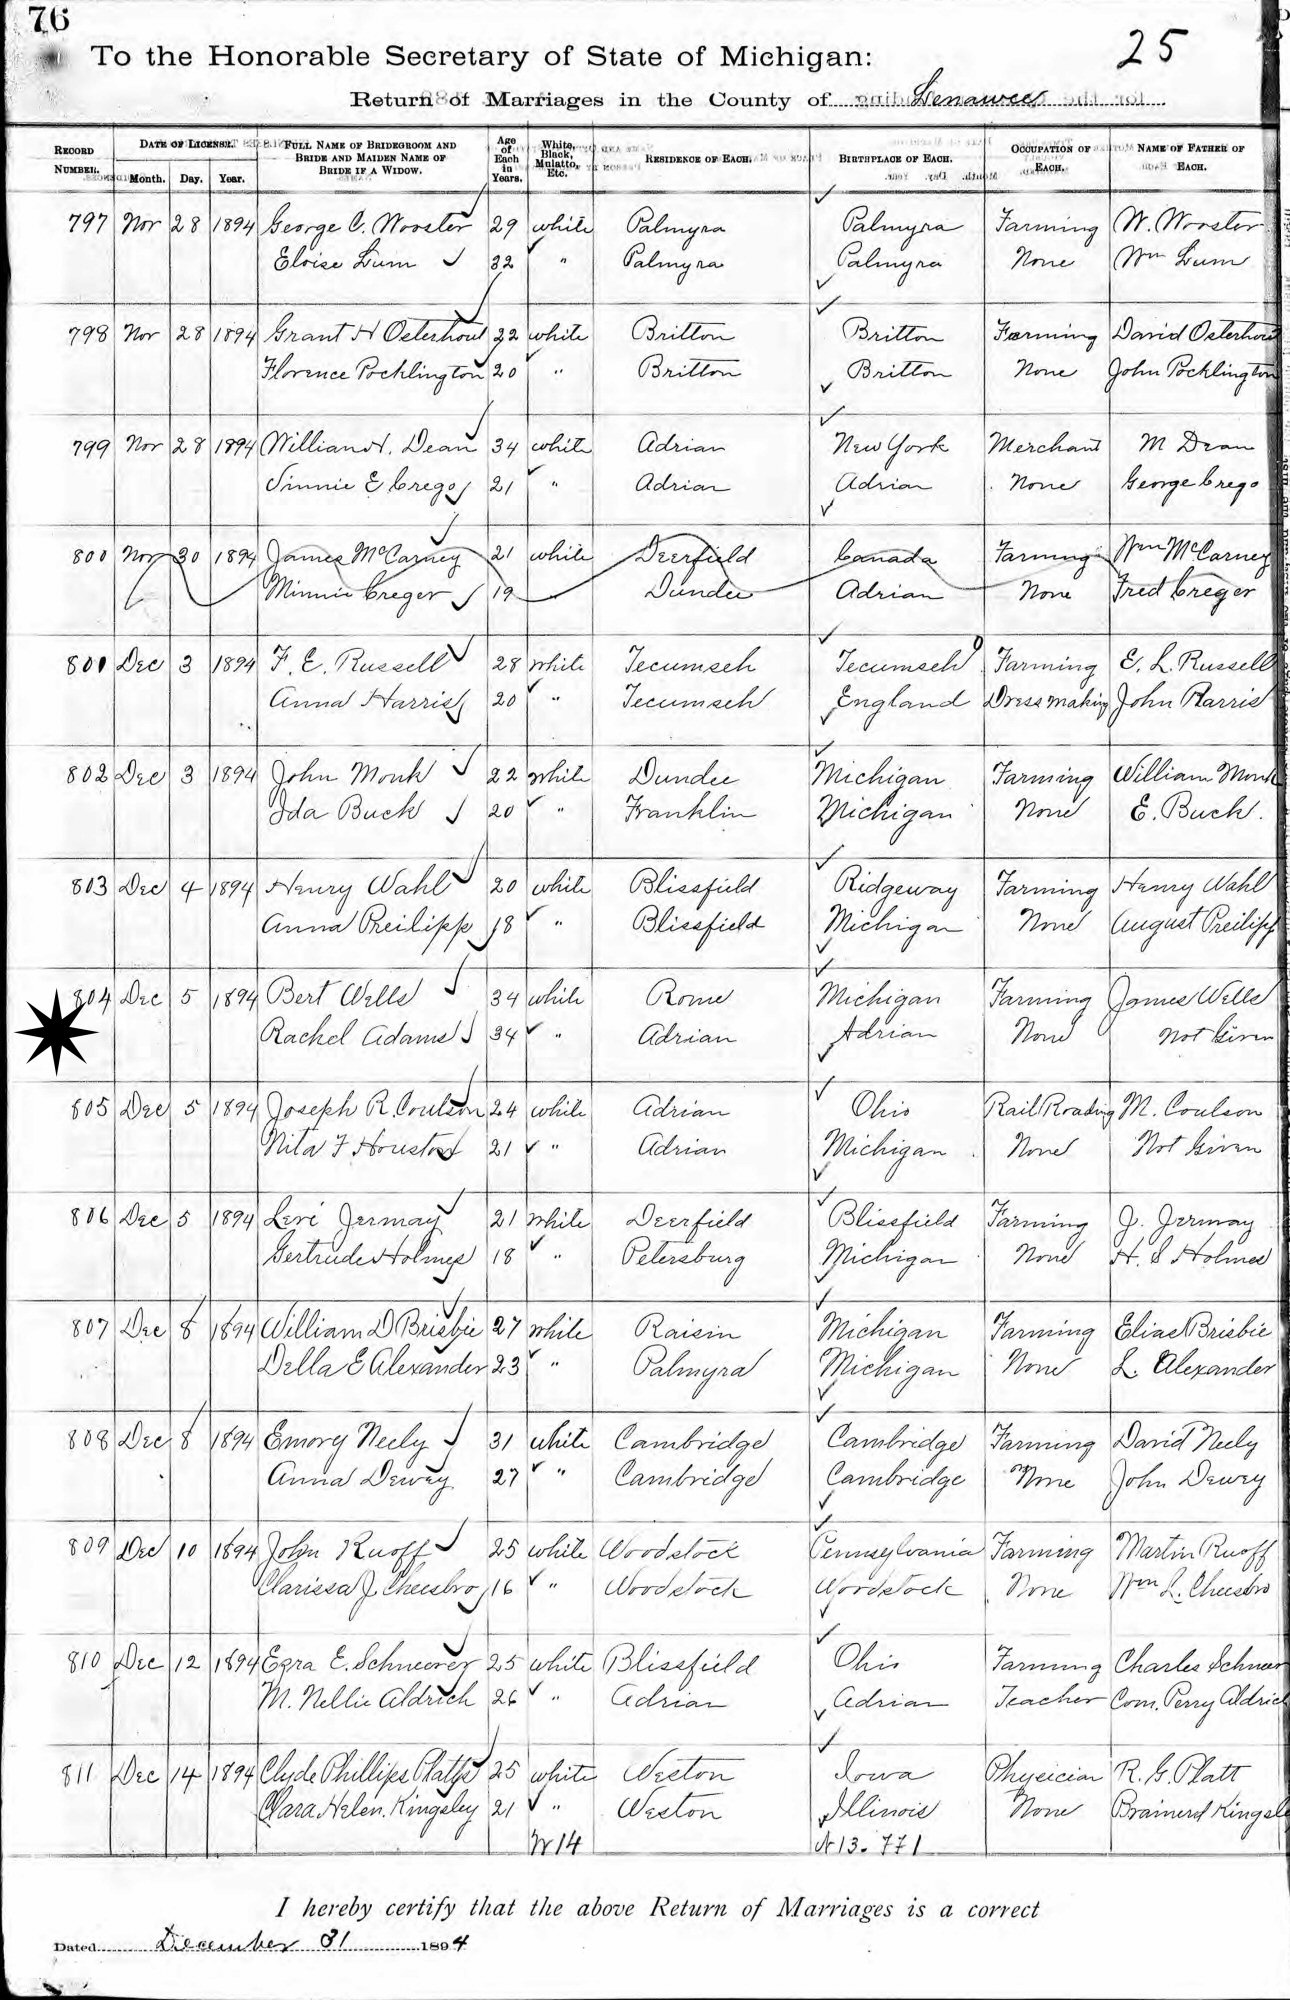 76
25
To the Honorable Secretary of State of Michigan:
Return of Marriages in the County of Lenawee
RECORD NUMBER. DATE OF LICENSE. Month. Day. Year. FULL NAME OF BRIDEGROOM AND BRIDE AND MAIDEN NAME OF BRIDE IF A WIDOW. Age of Each in Years. White, Black, Mulatto, Etc. RESIDENCE OF EACH. BIRTHPLACE OF EACH. OCCUPATION OF EACH. NAME OF FATHER OF EACH.
797 Nov 28 1894 George C. Wooster 29 white Palmyra Palmyra Farming W. Wooster
Eloise Lum 32 " Palmyra Palmyra None Wm Lum
798 Nov 28 1894 Grant H Osterhout 22 white Britton Britton Farming David Osterhout
Florence Pocklington 20 " Britton Britton None John Pocklington
799 Nov 28 1894 William H. Dean 34 white Adrian New York Merchant M Dean
Vinnie E Crego 21 " Adrian Adrian None George Crego
800 Nov 30 1894 James McCarney 21 white Deerfield Canada Farming Wm McCarney
Minnie Creger 19 " Dundee Adrian None Fred Creger
801 Dec 3 1894 F. E. Russell 28 white Tecumseh Tecumseh Farming E. L. Russell
Anna Harris 20 " Tecumseh England Dressmaking John Harris
802 Dec 3 1894 John Monk 22 white Dundee Michigan Farming William Monk
Ida Buck 20 " Franklin Michigan None E. Buck.
803 Dec 4 1894 Henry Wahl 20 white Blissfield Ridgeway Farming Henry Wahl
Anna Preilipp 18 " Blissfield Michigan None August Preilipp
804 Dec 5 1894 Bert Wells 34 white Rome Michigan Farming James Wells
Rachel Adams 34 " Adrian Adrian None Not Given
805 Dec 5 1894 Joseph R. Coulson 24 white Adrian Ohio Rail Roading M. Coulson
Nita F Houston 21 " Adrian Michigan None Not Given
806 Dec 5 1894 Levi Jermay 21 white Deerfield Blissfield Farming J. Jermay
Gertrude Holmes 18 " Petersburg Michigan None H. S Holmes
807 Dec 8 1894 William D Brisbie 27 white Raisin Michigan Farming Elias Brisbie
Della E Alexander 23 " Palmyra Michigan None L. Alexander
808 Dec 8 1894 Emory Neely 31 white Cambridge Cambridge Farming David Neely
Anna Dewey 27 " Cambridge Cambridge None John Dewey
809 Dec 10 1894 John Ruoff 25 white Woodstock Pennsylvania Farming Martin Ruoff
Clarissa J. Cheesbro 16 " Woodstock Woodstock None Wm L. Cheesbro
810 Dec 12 1894 Ezra E. Schneerer 25 white Blissfield Ohio Farming Charles Schneer
M. Nellie Aldrich 26 " Adrian Adrian Teacher Com. Perry Aldrich
811 Dec 14 1894 Clyde Phillips Platts 25 white Weston Iowa Physician R. G. Platt
Clara Helen Kingsley 21 " Weston Illinois None Brainerd Kingsle
W 14 N 13. 771
I hereby certify that the above Return of Marriages is a correct
Dated December 31 1894